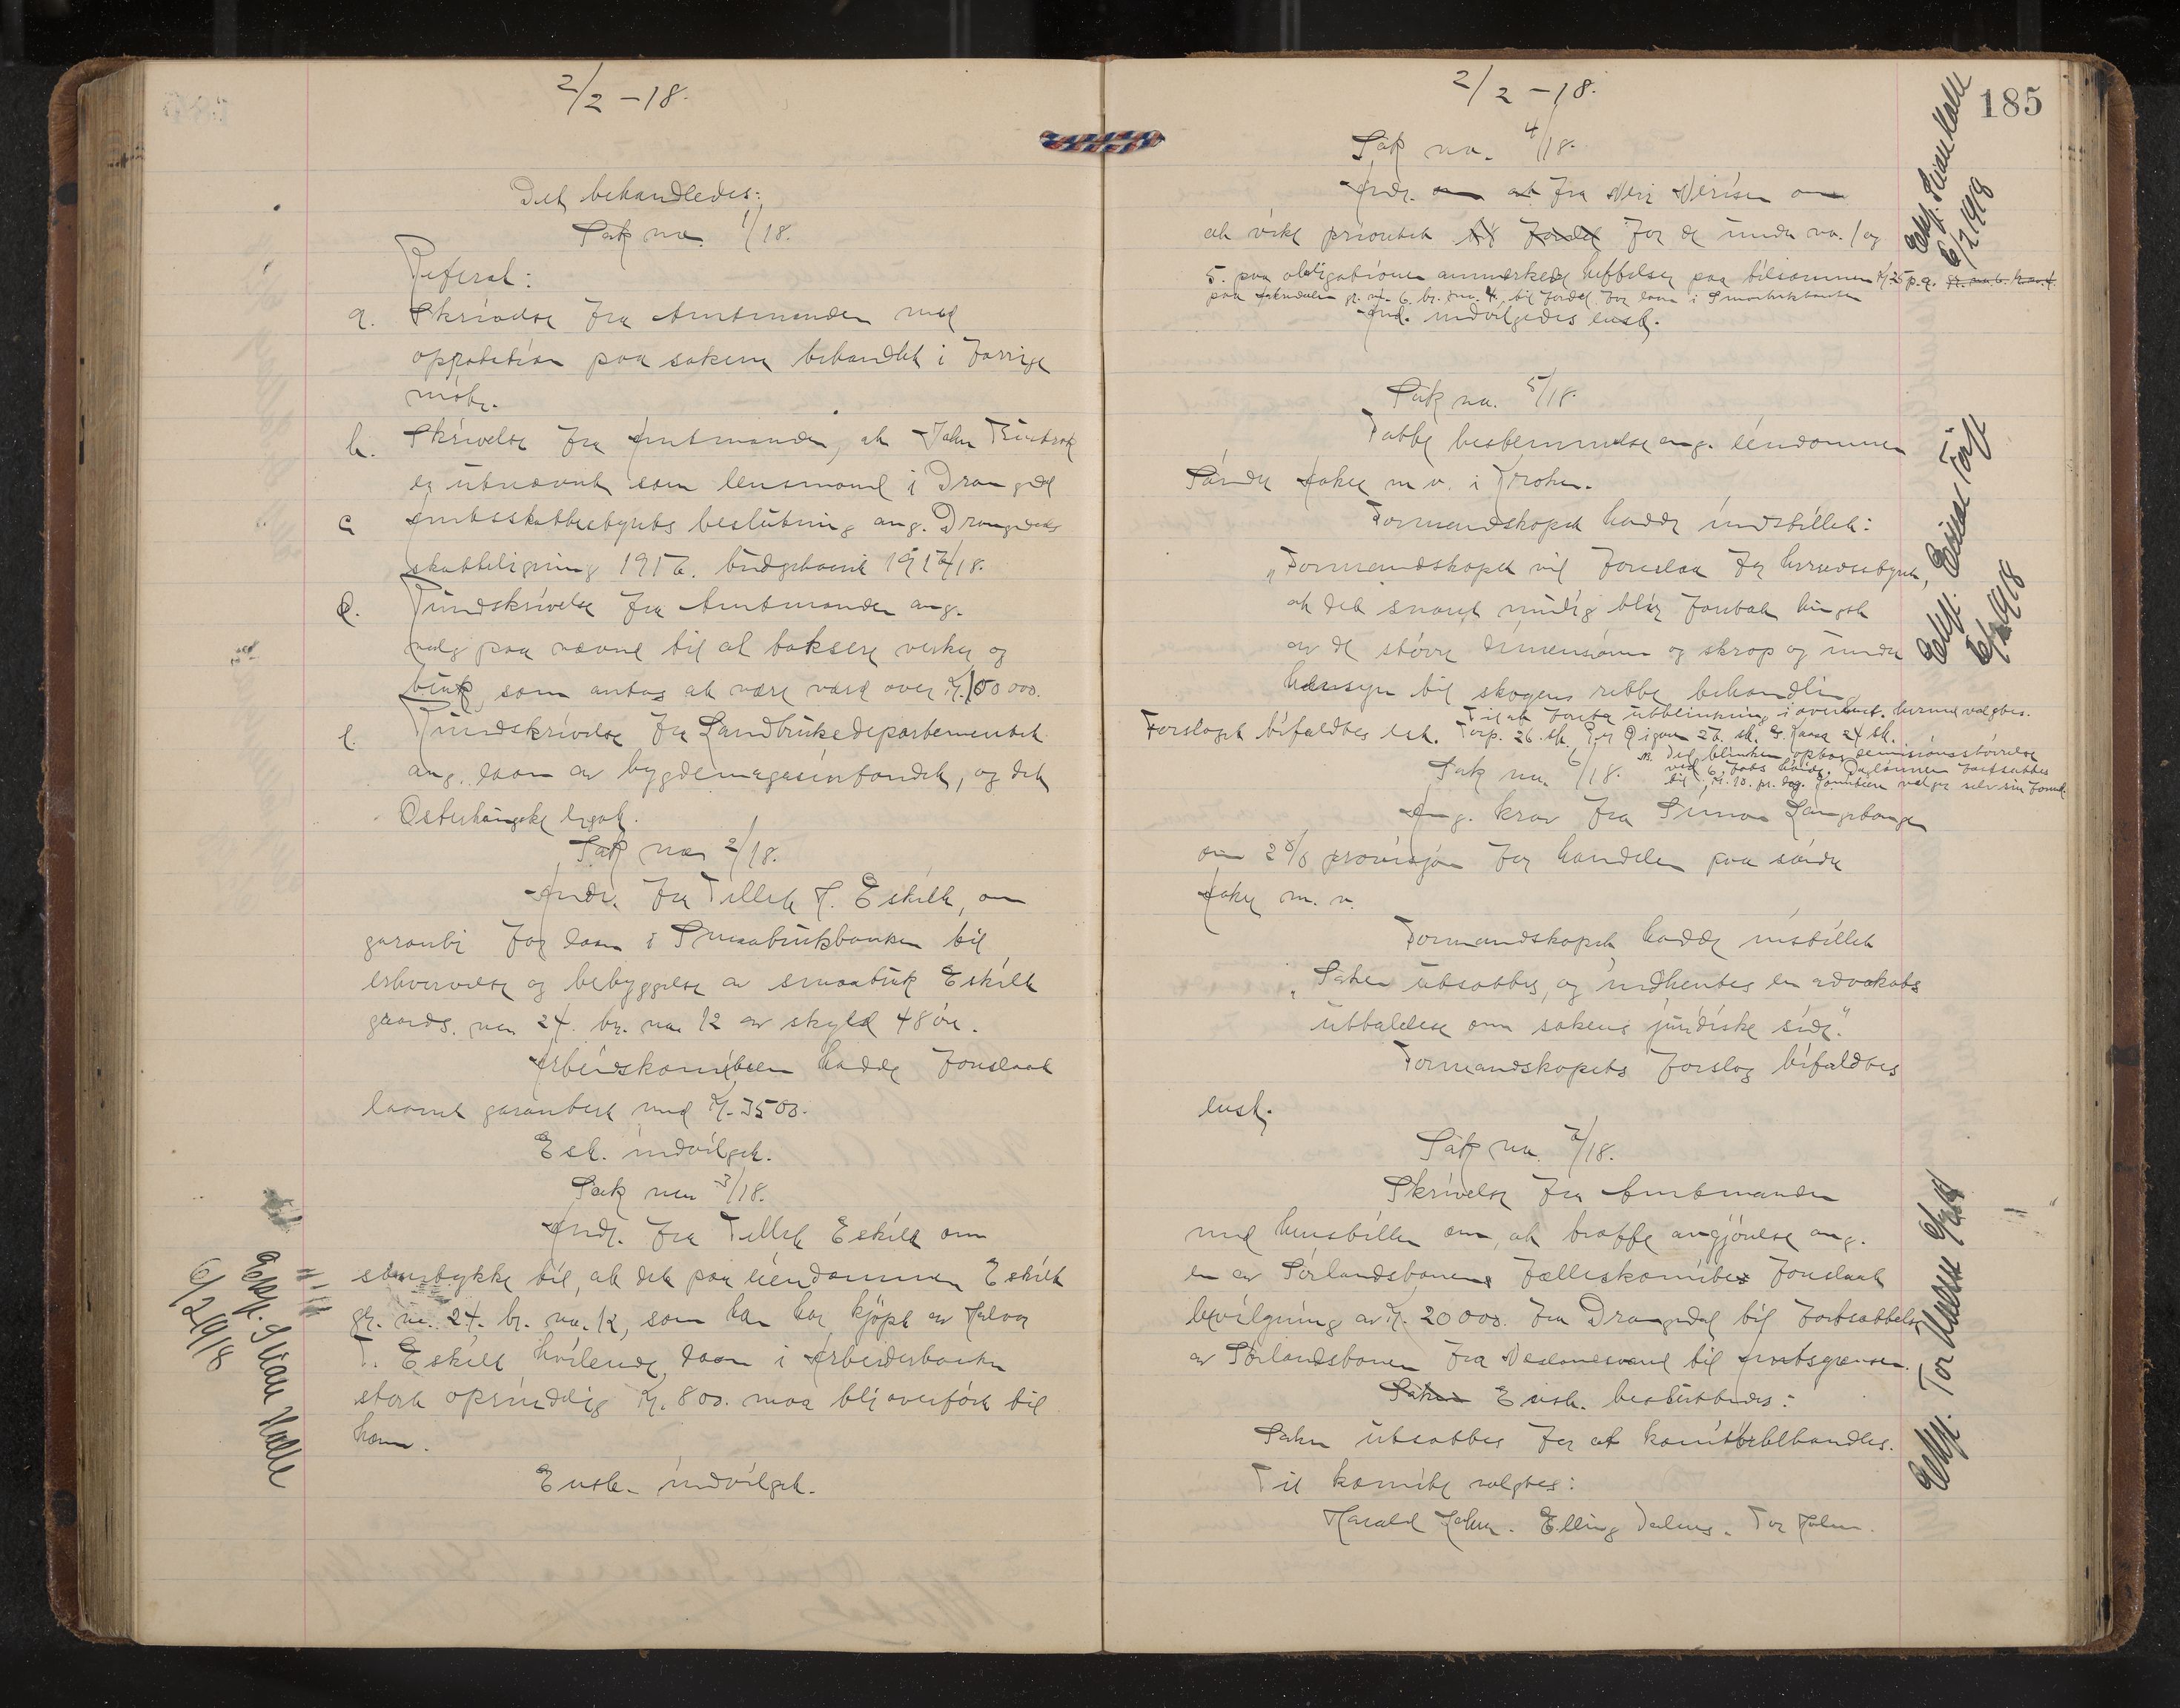 2/2 - 18.
Det behandledes:
Sak no. 1/18.
Referat:
a. Skrivelse fra Amtmanden med
approbation paa sakene behandlet i forrige
møte.
b. Skrivelse fra Amtmanden, at John
er utnævnt som lensmand i Drangedal
c Amtsskattestyrets beslutning ang. Drangedals
skatteligning 1916. budgetaaret 1917/18.
d. Rundskrivelse fra Amtmanden ang.
valg paa nævnd til at taksere verker og
bruk, som antas at være værd over kr. 100 000.
e. Rundskrivelse fra Landbruksdepartementet
ang. laan av bygdemagasinfondet, og det
Østerhaugske legat.
Sak no. 2/18.
Andr. fra Tellef H. Eskilt, om
garanti for laan i Smaabrukbanken til
erhvervelse og bebyggelse av smaabruk Eskilt
gaards. no. 24. br. no. 12 av skyld 48 øre.
Arbeidskomiteen hadde foreslaat
laanet garantert med kr. 3500.
Est. indvilget.
Sak no. 3/18.
Andr. fra Tellef Eskilt om
samtykke til, at det paa eiendommen Eskilt
gr. no. 24. br. no. 12, som han har kjøpt av Halvor
T. Eskilt hvilende laan i Arbeiderbanken
stort oprindelig kr. 800. maa bli overført til
ham.
Enst. indvilget.
Eksp.
6/2 1918
2/2 - 18.
185
Sak no. 4/18.
Andr. om at fra om
at vike prioritet for de under no. 1 og
5. paa obligationen anmerkede heftelser paa tilsammen kr. 25 p.a.
paa gr. no. 6. br. no. 4. til fordel for laan i Smaabrukbanken
And. indvilgedes enst.
Eksp.
6/2 1918
Sak no. 5/18.
Fatte bestemmelse ang. eiendommen
Søndre Aaker m. v. i Kroken.
Formandskapet hadde indstillet:
"Formandskapet vil foreslaa for herredsstyret,
at det snarest mulig blir foretat hugst
av de større dimensioner og skrap og under
hensyn til skogens rette behandling
Til at foreta utblinkning i overenst. hermed valgtes.
Forslaget bifaldtes est. Torp. 26. st. 26. st. 24 st.
ved 6 fots høide. Daglønnen fortsættes
til kr. 10. pr. dag. Komiteen velger selv sin formd.
Eksp.
6/2 1918
Sak no. 6/18.
Ang. krav fra Simon Langetangen
om 2 % provisjon for handelen paa søndre
Aaker m. v.
Formandskapet hadde instillet
"Saken utsættes, og indhentes en advokats
uttalelse om sakens juridiske side."
Formandskapets forslag bifaldtes
enst.
Sak no. 7/18.
Skrivelse fra Amtmanden
med henstillen om, at træffe avgjørelse ang.
en av Sørlandsbanens fælleskomite foreslaat
bevilgning av kr. 20 000. fra Drangedal til fortsættelse
av Sørlandsbanen fra Neslandsvand til Amtsgrænsen.
Enst. besluttedes:
Saken utsættes for at komitebehandles.
Til komite valgtes:
Harald . Elling . Tor Holm.
Eksp. Tor